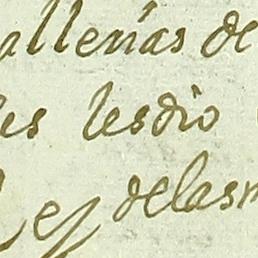 allerias de
es lesdio
ey delas